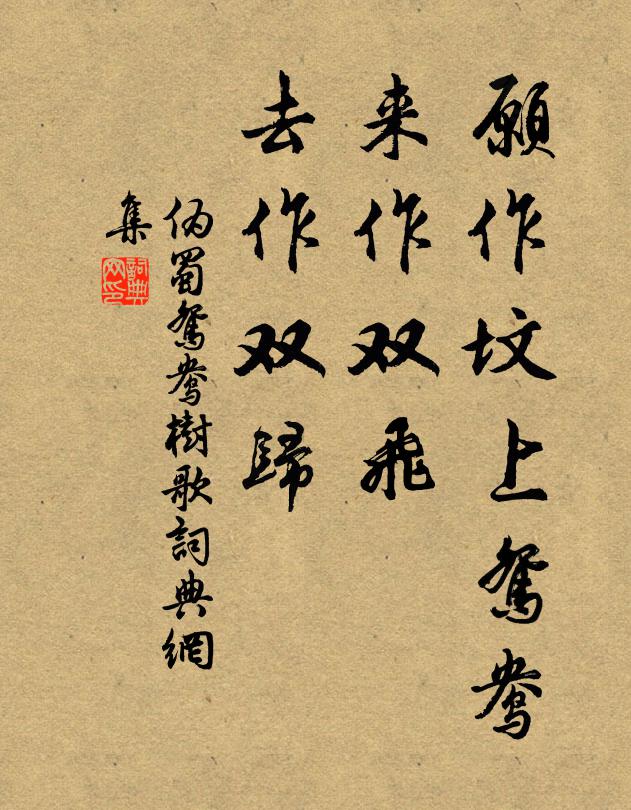 願作坟上鴛鴦
来作双飛
去作双歸
偽蜀鴛鴦樹歌詞典網
集
詞典网印